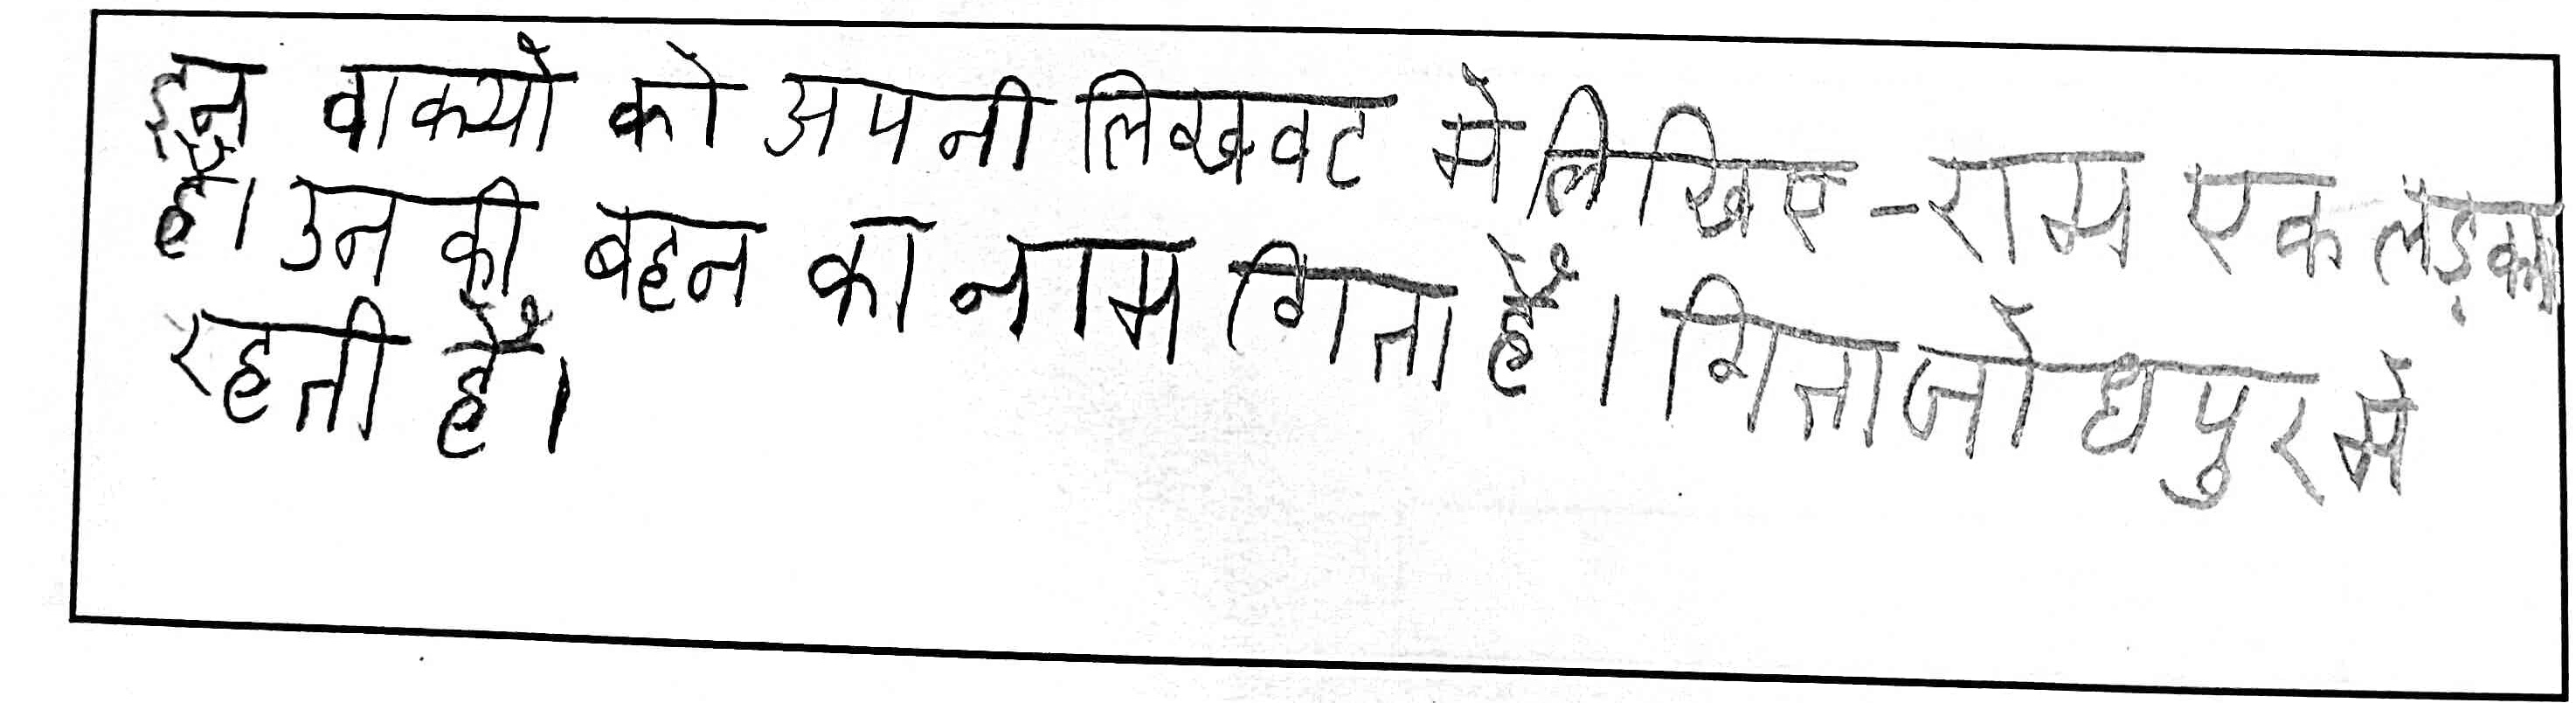 इन वाक्यों को अपनी लिखवट मे लिखिए - राम एक लड़का
हैं। उन की बहन का नाम गिता हैं। गिता जोधपुर मे
रहती हैं।